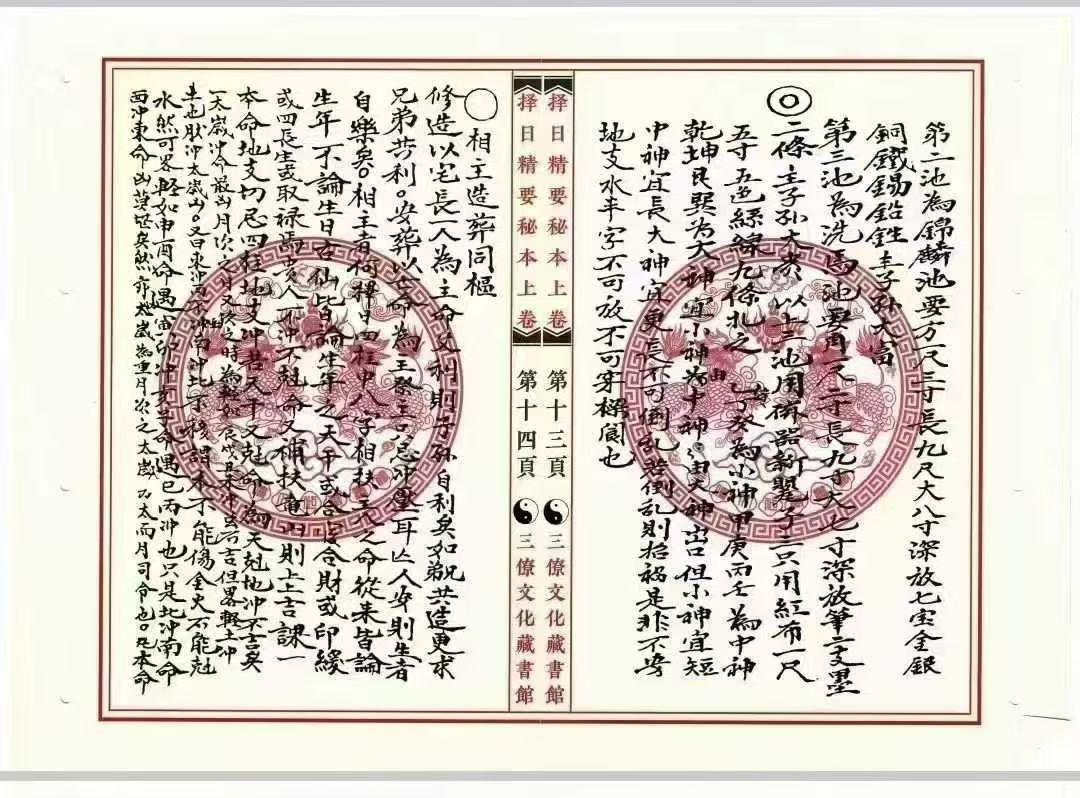 第二池為錦麟池要方一尺三寸長九尺大八寸深放七宝金銀
銅鐵錫鉛鉎主子孙大富
第三池為洗馬池要角尺二寸長九寸大七寸深放筆二支墨
二條主子孙大貴以上三池用
三只用紅布一尺
五寸五色絲線九條扎之
丁癸為小神甲庚丙壬為中神
乾坤艮巽為大神宜小神為中神
大神出但小神宜短
中神宜長大神宜更長不可倒乱若倒乱則招禍是非不旁
地支水丰字不可放不可穿
也
择日精要秘本上卷
第十三頁
三僚文化藏書館
择日精要秘本上卷
第十四頁
三僚文化藏書館
相主造葬同樞
修造以宅長一人為主命
利則子孙自利矣如兄弟共造更求
兄弟共利。安葬以亡命為主祭主只忌冲壓耳亡人安則生者
自樂矣。相主者
择日四柱中八字相扶主人之命從来皆論
生年不論生日古仙皆論生年之天干或合官合財或印綬
或四長生或取禄馬貴人不冲不尅命又補扶竜山則上上吉課一
本命地支切忌四柱地支冲若天干又尅命為天尅地冲不吉矣
一太歲冲命最凶月次之日又次之時為輕如辰戌丑未冲為吉但畧輕土冲
土也
冲太歲凶。又曰東
冲西南冲北不
謂木不能傷金火不能尅
水然可畧輕如申酉命遇
卯冲
命遇巳丙冲也只是北冲南命
西冲東命凶
矣然
太歲為重月次之太歲
而月司令也。凡本命